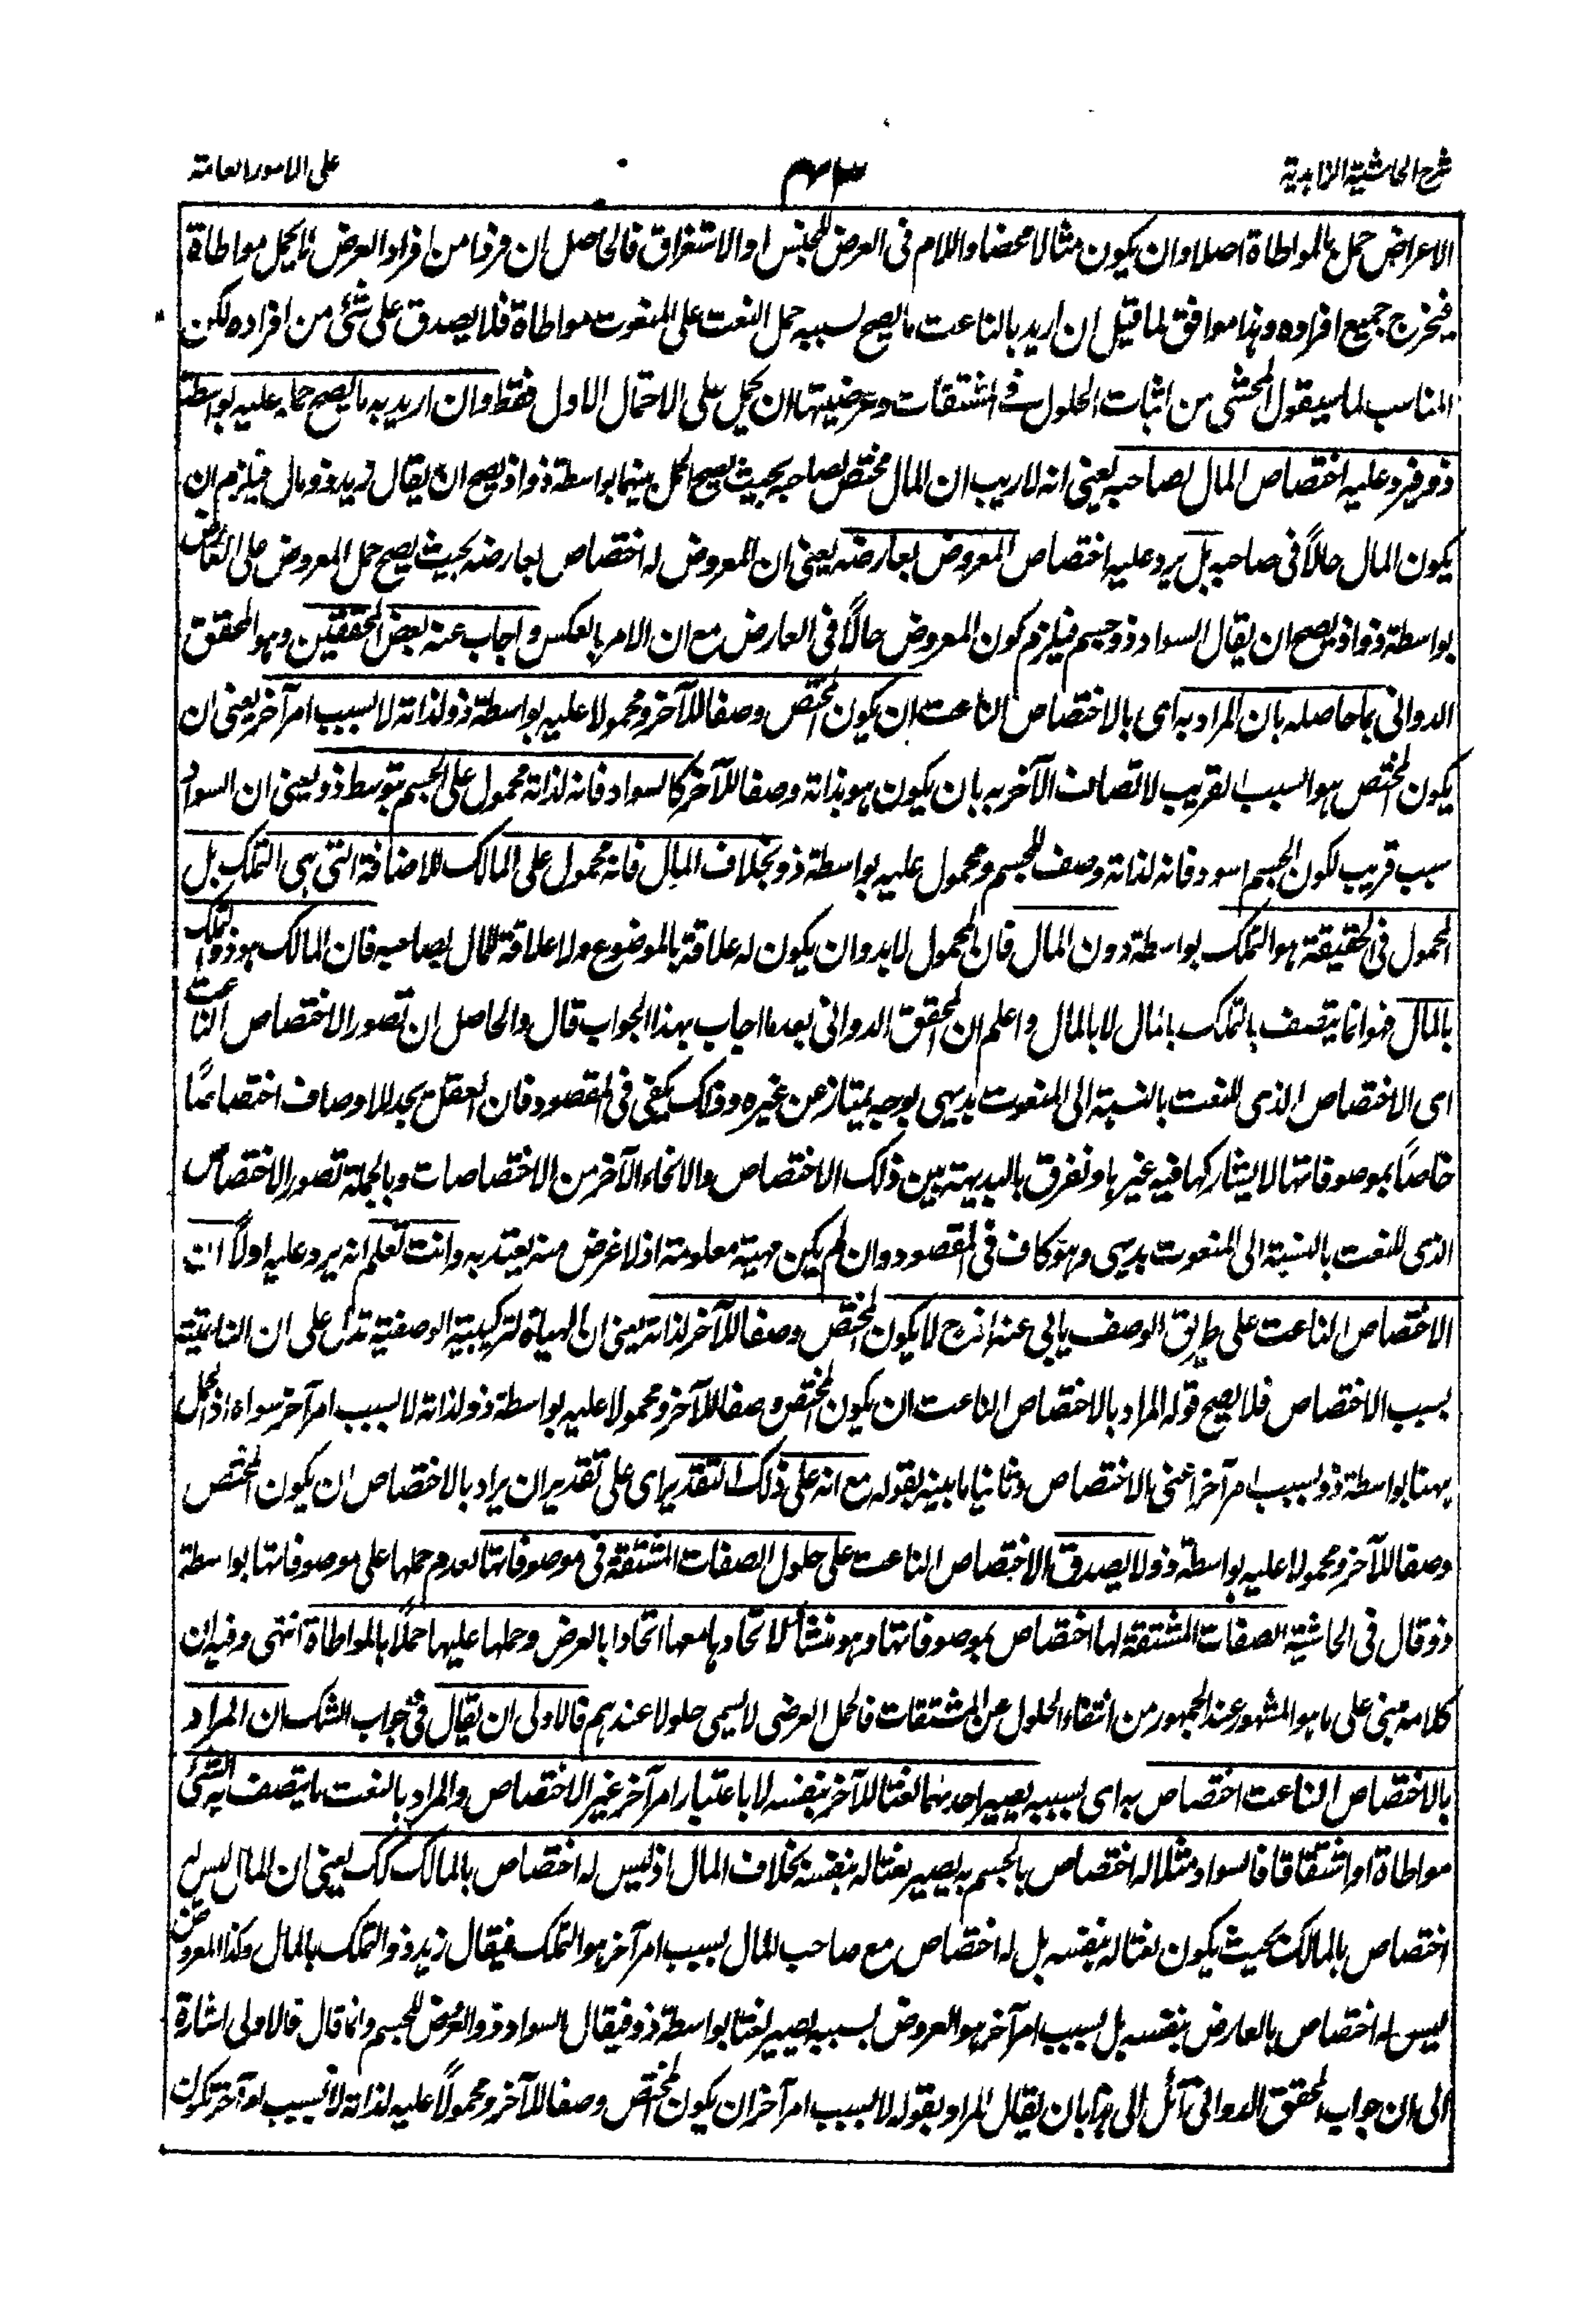 شرح الحاشية الزاهدية
على الامور العامة
الاعراض حمل بالمواطاة اصلا وان يكون مثالا محضا واللام فى العرض للجنس او الاستغراق فالحاصل ان فردا من افراد العرض لا يحمل مواطاة
فيخرج جميع افراده وهذا موافق لما قيل ان اريد بالناعت ما يصح بسببه حمل النعت على المنعوت مواطاة فلا يصدق على شئ من افراده لكن
المناسب لما سيقول المحشى من اثبات الحلول فى المشتقات وعرضيتها ان يحمل على الاحتمال الاول فقط وان اريد به ما يصح حمله عليه بواسطة
ذو فيرد عليه اختصاص المال بصاحبه يعنى انه لا ريب ان المال مختص بصاحبه بحيث يصح الحمل بينهما بواسطة ذو اذ يصح ان يقال زيد ذو مال فيلزم ان
يكون المال حالاً فى صاحبه بل يرد عليه اختصاص المعروض بعارضه يعنى ان المعروض له اختصاص بعارضه بحيث يصح حمل المعروض على العارض
بواسطة ذو اذ يصح ان يقال السواد ذو جسم فيلزم كون المعروض حالاً فى العارض مع ان الامر بالعكس واجاب عنه بعض المحققين وهو المحقق
الدوانى بما حاصله بان المراد به اى بالاختصاص الناعت ان يكون المختص وصفا للآخر ومحمولا عليه بواسطة ذو لذاته لا بسبب امر آخر يعنى ان
يكون المختص هو السبب القريب لاتصاف الآخر به بان يكون هو بذاته وصفا للآخر كالسواد فانه لذاته محمول على الجسم بتوسط ذو يعنى ان السواد
سبب قريب لكون الجسم اسود فانه لذاته وصف للجسم ومحمول عليه بواسطة ذو بخلاف المال فانه محمول على المالك للاضافة التى هى التملك بل
المحمول فى الحقيقة هو التملك بواسطة دون المال فان المحمول لا بد وان يكون له علاقة بالموضوع ولا علاقة للمال بصاحبه فان المالك هو ذو التملك
بالمال فهو انما يتصف بالتملك بالمال لا بالمال واعلم ان المحقق الدوانى بعد ما اجاب بهذا الجواب قال والحاصل ان تصور الاختصاص الناعت
اى الاختصاص الذى للنعت بالنسبة الى المنعوت بديهى بوجه يمتاز عن غيره وذلك يكفى فى المقصود فان العقل يجد للاوصاف اختصاصًا
خاصًا بموصوفاتها لا يشاركها فيه غيرها ونفرق بالبديهة بين ذلك الاختصاص والانحاء الآخر من الاختصاصات وبالجملة تصور الاختصاص
الذى للنعت بالنسبة الى المنعوت بديهى وهو كاف فى المقصود وان لم يكن مهية معلومة اذ لا غرض منه يعتد به وانت تعلم انه يرد عليه اولاً ان
الاختصاص الناعت على طريق الوصف يابى عنه اذ ح لا يكون المختص وصفا للآخر لذاته يعنى ان الهيأة التركيبية الوصفية تدل على ان الناعتية
بسبب الاختصاص فلا يصح قوله المراد بالاختصاص الناعت ان يكون المختص وصفا للآخر ومحمولا عليه بواسطة ذو لذاته لا بسبب امر آخر سواه اذ الحمل
ههنا بواسطة ذو بسبب امر آخر اعنى الاختصاص وثانيا ما بينه بقوله مع انه على ذلك التقدير اى على تقدير ان يراد بالاختصاص ان يكون المختص
وصفا للآخر ومحمولا عليه بواسطة ذو لا يصدق الاختصاص الناعت على حلول الصفات المشتقة فى موصوفاتها لعدم حملها على موصوفاتها بواسطة
ذو قال فى الحاشية الصفات المشتقة لها اختصاص بموصوفاتها وهو منشأ لاتحادها معها اتحادا بالعرض وحملها عليها حملاً بالمواطاة انتهى وفيه ان
كلامه مبنى على ما هو المشهور عند الجمهور من انتفاء الحلول عن المشتقات فالحمل العرضى لا يسمى حلولا عندهم فالاولى ان يقال فى جواب الشك ان المراد
بالاختصاص الناعت اختصاص به اى بسببه يصير احدهما نعتا للآخر بنفسه لا باعتبار امر آخر غير الاختصاص والمراد بالنعت ما يتصف به الشئ
مواطاة او اشتقاقا فالسواد مثلا له اختصاص بالجسم به يصير نعتا له بنفسه بخلاف المال اذ ليس له اختصاص بالمالك كك يعنى ان المال ليس له
اختصاص بالمالك بحيث يكون نعتا له بنفسه بل له اختصاص مع صاحب المال بسبب امر آخر هو التملك فيقال زيد ذو التملك بالمال وكذا المعروض
ليس له اختصاص بالعارض بنفسه بل بسبب امر آخر هو العروض بسببه يصير نعتا بواسطة ذو فيقال السواد ذو العروض للجسم وانما قال فالاولى اشارة
الى ان جواب المحقق الدوانى آئل الى هذا بان يقال المراد بقوله لا بسبب امر آخر ان يكون المختص وصفا للآخر ومحمولاً عليه لذاته لا بسبب امر آخر يكون